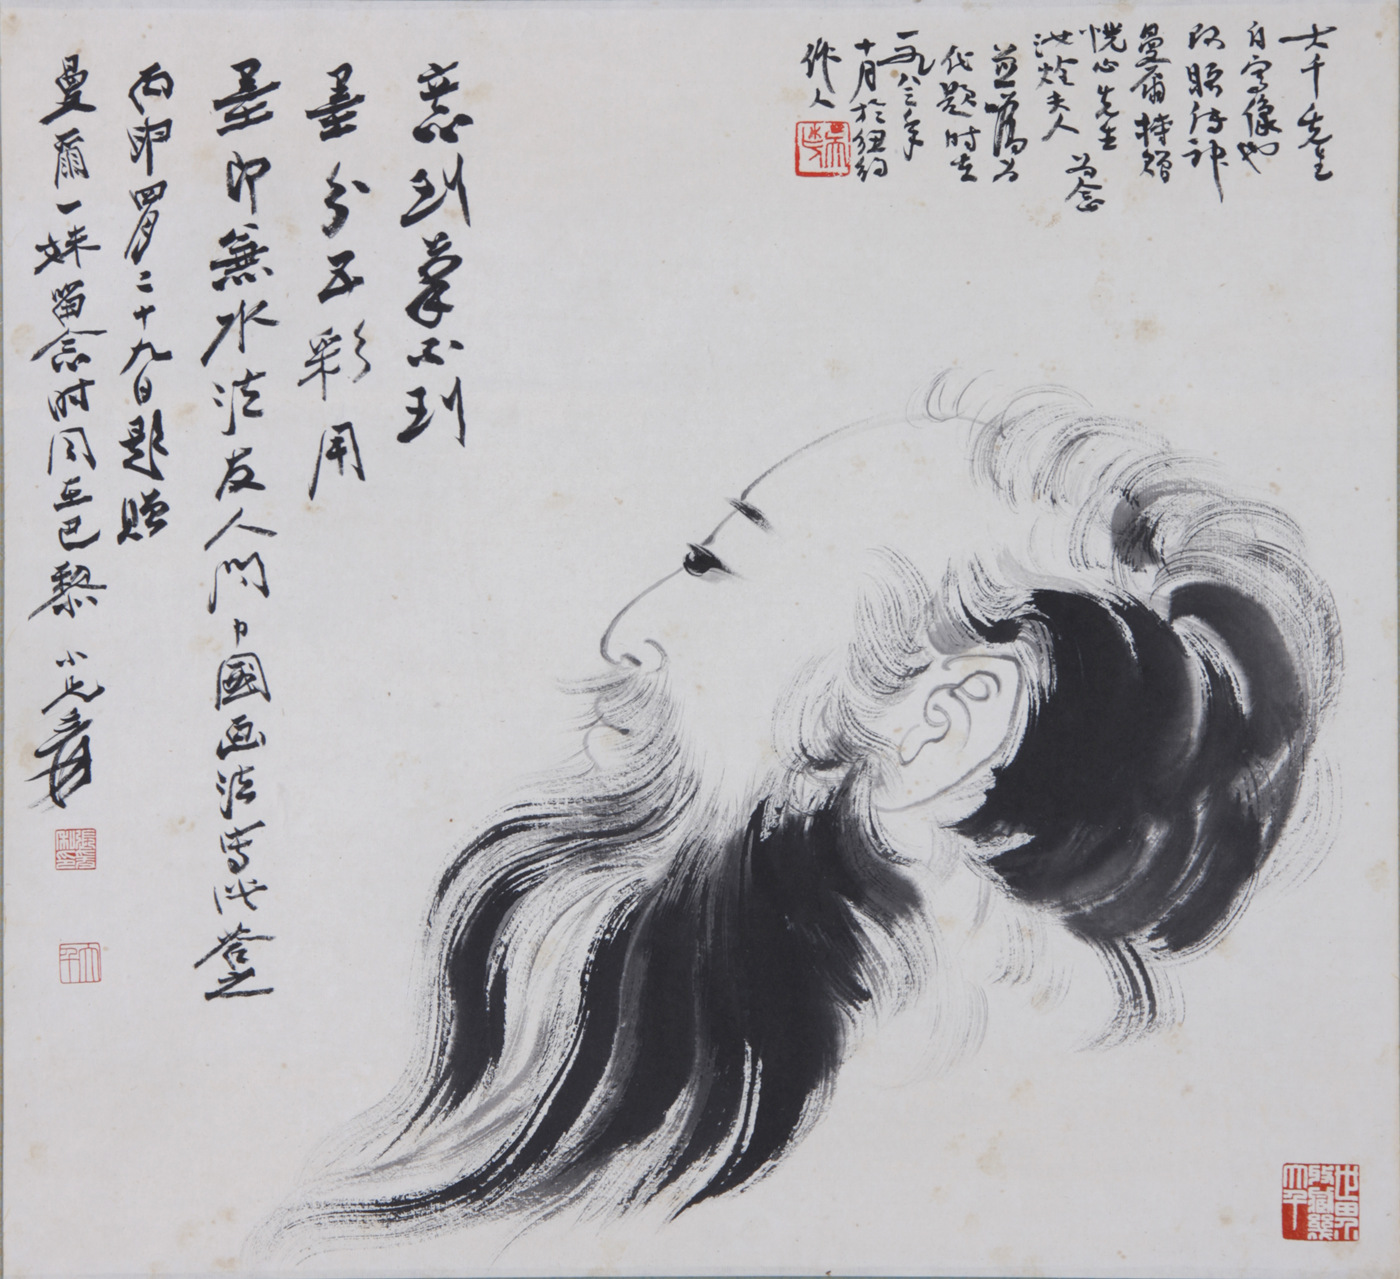 大千先生
自寫像也
傳神
曼爾特贈
先生
夫人 為念
並屬為
代題時在
一九八三年
十月於紐約
作人
意到筆不到
墨分五彩用
墨即無水法友人問中國画法寫此答之
丙申四月二十九日題贈
曼爾一妹留念时同在巴黎 小兄爰
大千